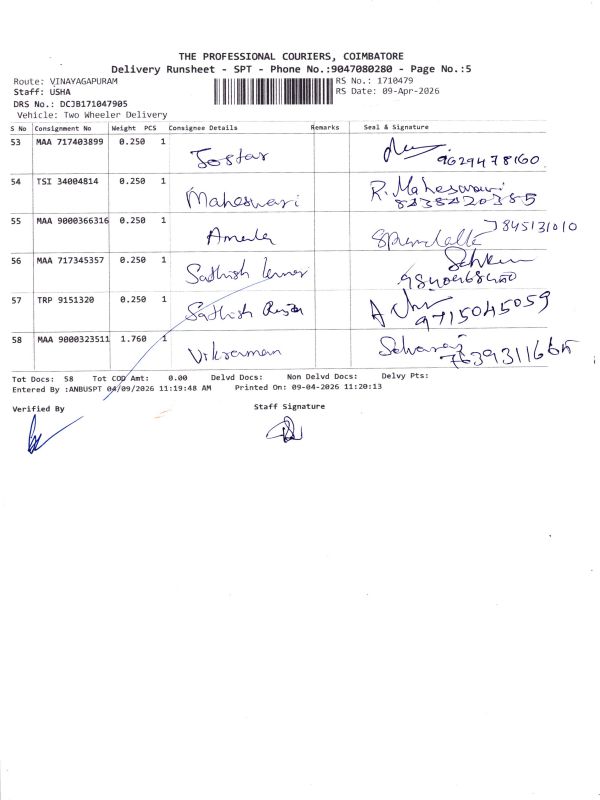 THE PROFESSIONAL COURIERS, COIMBATORE
Delivery Runsheet - SPT - Phone No.:9047080280 - Page No.:5
Route: VINAYAGAPURAM RS No.: 1710479
Staff: USHA RS Date: 09-Apr-2026
DRS No.: DCJB171047905
Vehicle: Two Wheeler Delivery
S No Consignment No Weight PCS Consignee Details Remarks Seal & Signature
53 MAA 717403899 0.250 1 Jostar 9629478160
54 TSI 34004814 0.250 1 Maheswari R. Maheswari
8438420385
55 MAA 9000366316 0.250 1 7845131010
56 MAA 717345357 0.250 1 Sathish Kumar
57 TRP 9151320 0.250 1 Sathish 9715045059
58 MAA 9000323511 1.760 1 Vikraman
Tot Docs: 58 Tot COD Amt: 0.00 Delvd Docs: Non Delvd Docs: Delvy Pts:
Entered By :ANBUSPT 04/09/2026 11:19:48 AM Printed On: 09-04-2026 11:20:13
Verified By Staff Signature